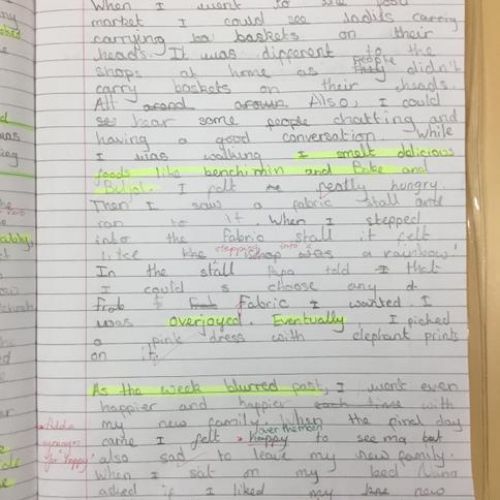 When I went to the food
market I could see ladies carring
carrying ba baskets on their
heads. It was different to the
shops at home as people didn't
carry baskets on their heads.
All around aroun. Also, I could
se hear some people chatting and
having a good conversation. While
I was walking I smelt delicious
foods like benchinin and Bake and
I felt really hungry.
Then I saw a fabric stall and
ran to it. When I stepped
into the fabric stall it felt
like stepping into a rainbow!
In the stall told I that
I could s choose any
Fabric I wanted. I
was overjoyed. Eventually, I picked
a pink dress with elephant prints
on it.
As the week blurred past, I went even
happier and happier each time with
my new family. When the final day
Add a
synonym
for 'happy'
came I felt happy over the moon to see ma but
also sad to leave my new family.
When I sat on my bed
asked if I liked my new